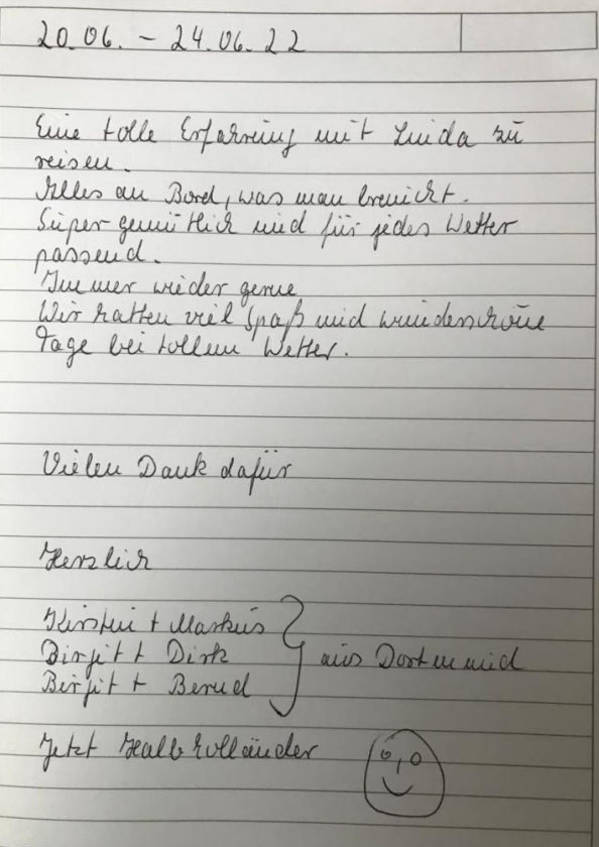 20.06. – 24.06.22
Eine tolle Erfahrung mit Linda zu
reisen.
Alles an Bord, was man braucht.
Super gemütlich und für jedes Wetter
passend.
Immer wieder gerne
Wir hatten viel Spaß und wunderschöne
Tage bei tollem Wetter.
Vielen Dank dafür
Herzlich
Kirstin + Markus
Birgit + Dirk
aus Dortmund
Birgit + Bernd
Jetzt Halbholländer